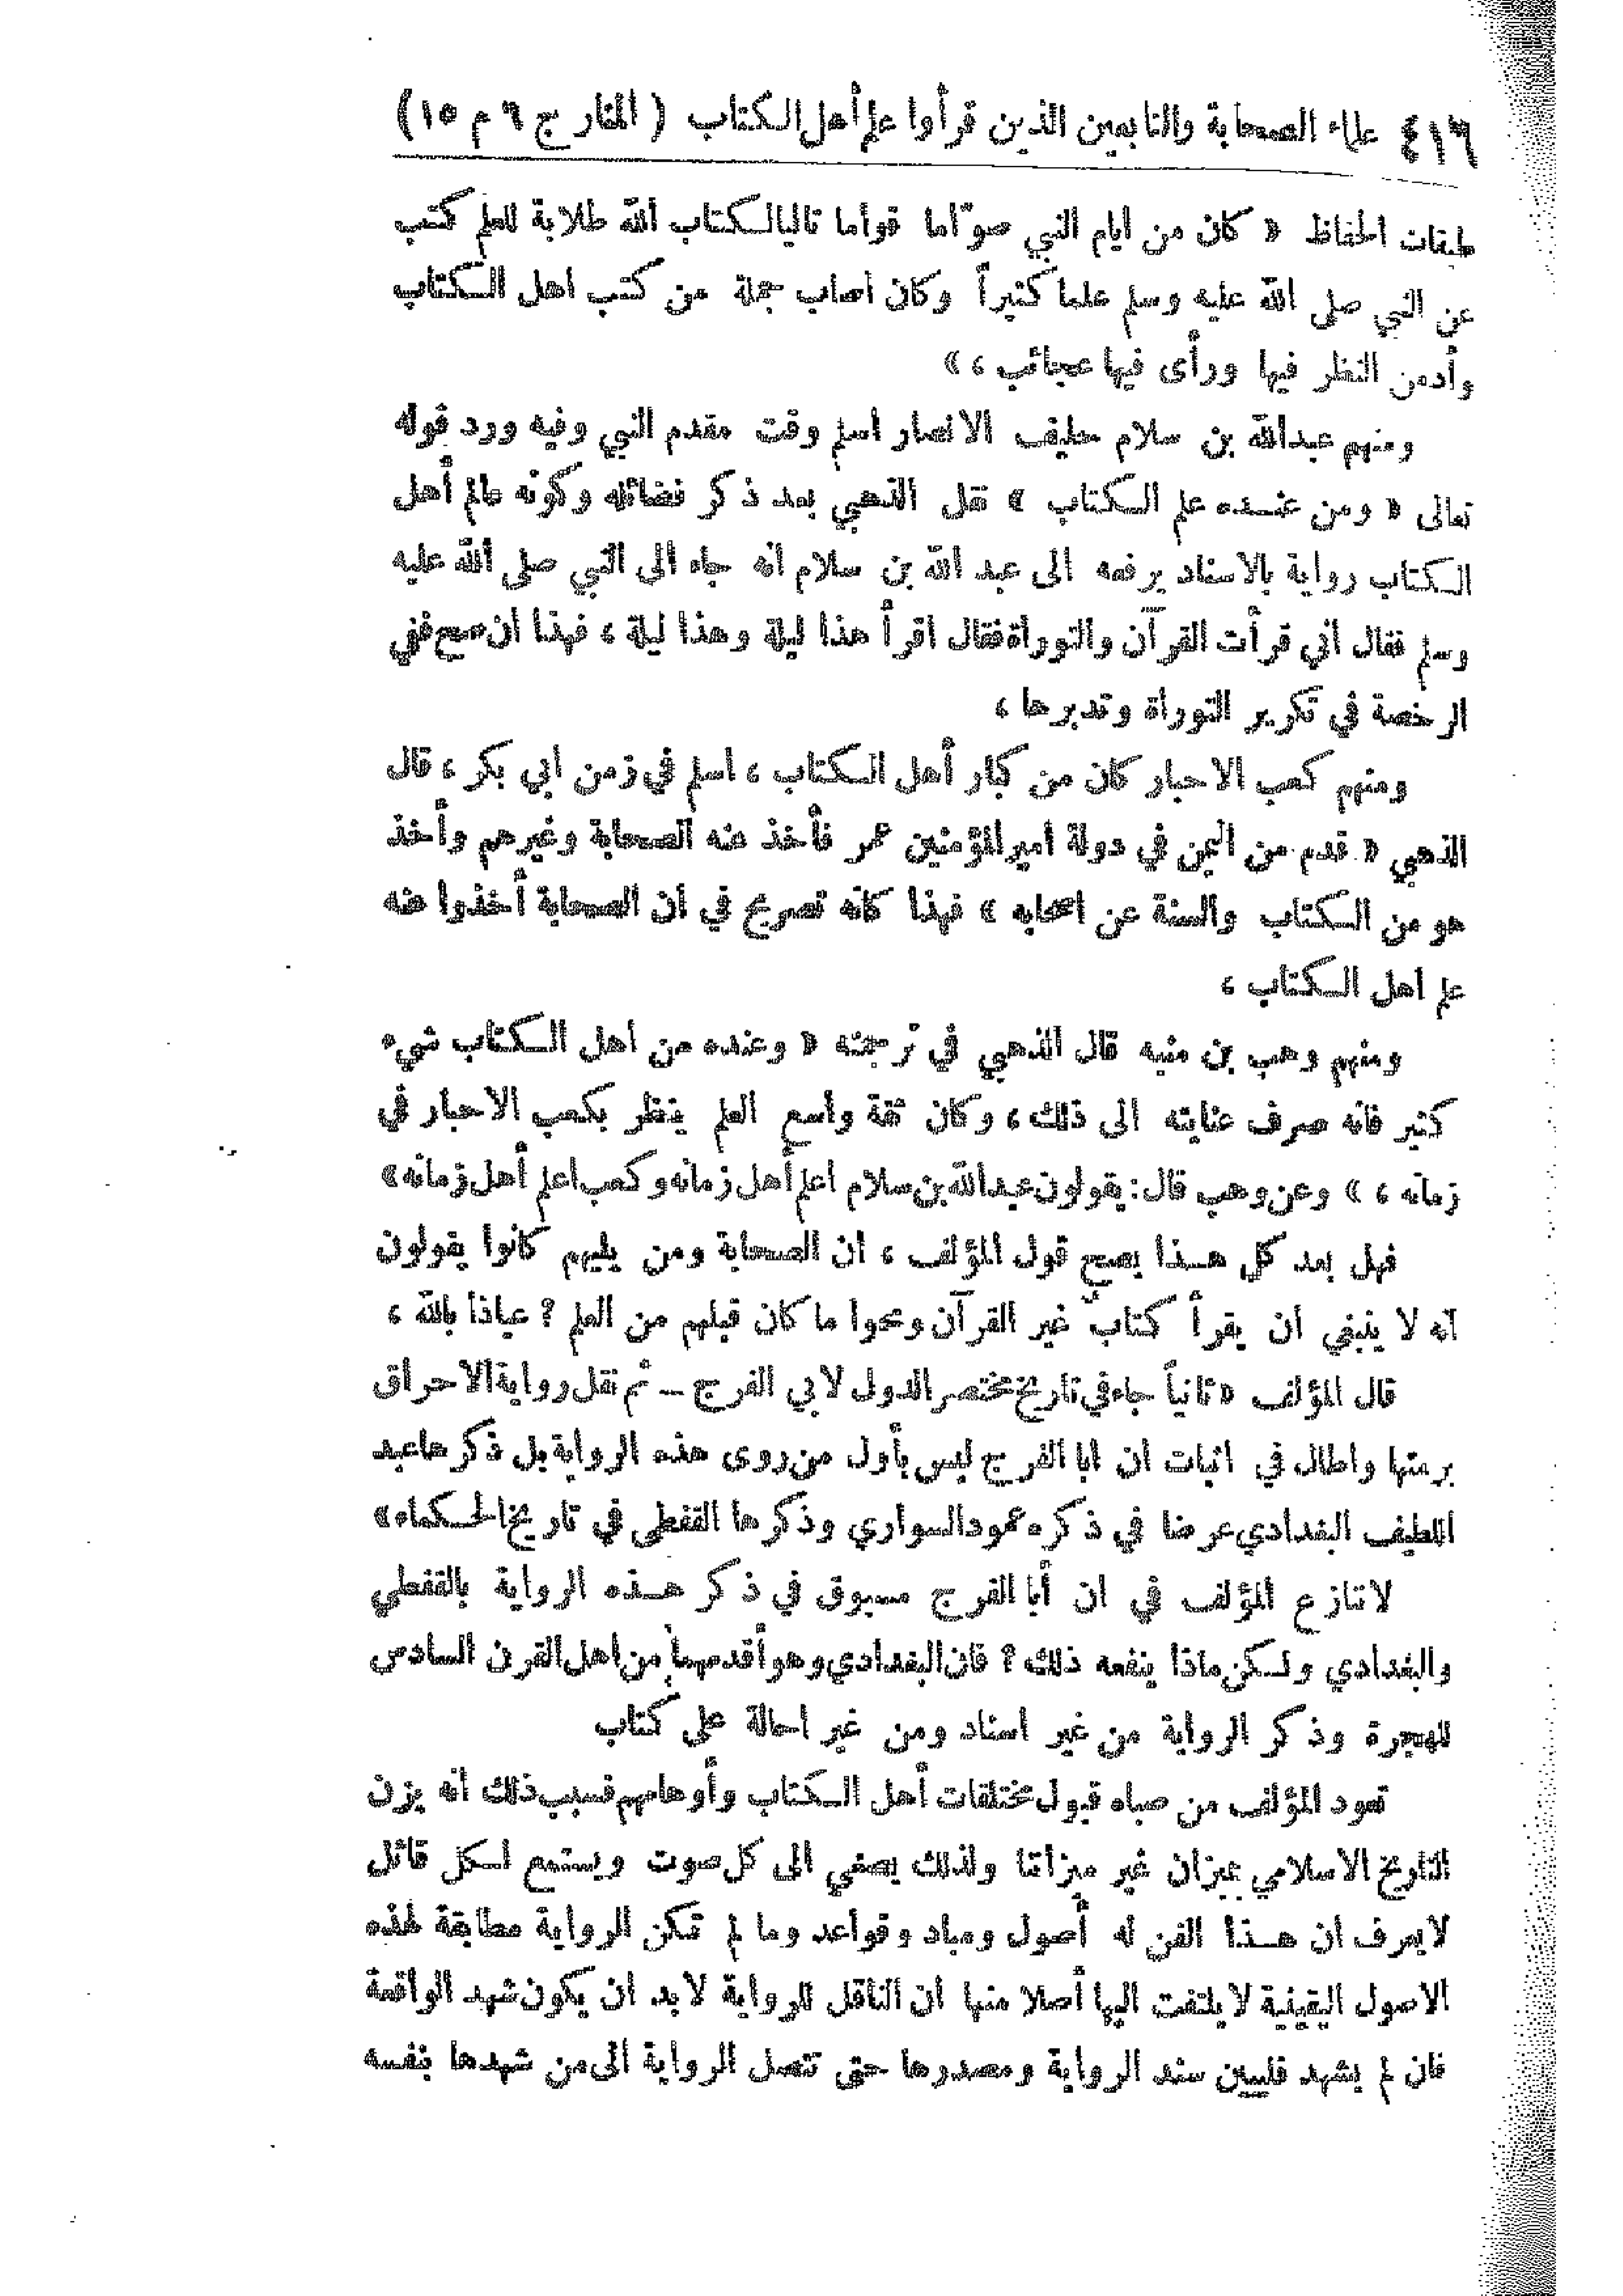 ٤١٦ علماء الصحابة والتابعين الذين قرأوا علم أهل الكتاب ( المنار ج ٦ م ١٥ )
طبقات الحفاظ « كان من ايام النبي صوّاما قواما تاليا لكتاب الله طلابة للعلم كتب
عن النبي صلى الله عليه وسلم علما كثيراً وكان اصاب جملة من كتب اهل الكتاب
وأدمن النظر فيها ورأى فيها عجائب ، »
ومنهم عبدالله بن سلام حليف الانصار اسلم وقت مقدم النبي وفيه ورد قوله
تعالى « ومن عنده علم الكتاب » نقل الذهبي بعد ذكر فضائله وكونه عالم أهل
الكتاب رواية بالاسناد يرفعه الى عبد الله بن سلام انه جاء الى النبي صلى الله عليه
وسلم فقال اني قرأت القرآن والتوراة فقال اقرأ هذا ليلة وهذا ليلة ، فهذا ان صح ففي
الرخصة في تكرير التوراة وتدبرها ،
ومنهم كعب الاحبار كان من كبار أهل الكتاب ، اسلم في زمن ابي بكر ، قال
الذهبي « قدم من اليمن في دولة امير المؤمنين عمر فأخذ عنه الصحابة وغيرهم وأخذ
هو من الكتاب والسنة عن اصحابه » فهذا كانه تصريح في ان الصحابة أخذوا عنه
علم اهل الكتاب ،
ومنهم وهب بن منبه قال الذهبي في ترجمته « وعنده من أهل الكتاب شيء
كثير فانه صرف عنايته الى ذلك ، وكان ثقة واسع العلم ينظر بكعب الاحبار في
زمانه ، » وعن وهب قال : يقولون عبدالله بن سلام اعلم أهل زمانه وكعب اعلم أهل زمانه »
فهل بعد كل هذا يصح قول المؤلف ، ان الصحابة ومن يليهم كانوا يقولون
انه لا ينبغي ان يقرأ كتاب غير القرآن ومحوا ما كان قبلهم من العلم ؟ عياذا بالله ،
قال المؤلف « ثانياً جاء في تاريخ مختصر الدول لابي الفرج — ثم نقل رواية الاحراق
برمتها واطال في اثبات ان ابا الفرج ليس بأول من روى هذه الرواية بل ذكرها عبد
اللطيف البغدادي عرضا في ذكره عمود السواري وذكرها القفطي في تاريخ الحكماء »
لا ننازع المؤلف في ان أبا الفرج مسبوق في ذكر هذه الرواية بالقفطي
والبغدادي ولكن ماذا ينفعه ذلك ؟ فان البغدادي وهو أقدمهما من اهل القرن السادس
للهجرة وذكر الرواية من غير اسناد ومن غير احالة على كتاب
تعود المؤلف من صباه قبول مختلقات أهل الكتاب وأوهامهم فسبب ذلك انه يزن
التاريخ الاسلامي بميزان غير ميزاننا ولذلك يصغي الى كل صوت ويستمع لكل قائل
لا يعرف ان هذا الفن له أصول ومباد وقواعد وما لم تكن الرواية مطابقة لهذه
الاصول اليقينية لا يلتفت اليها أصلا منها ان الناقل للرواية لا بد ان يكون شهد الواقعة
فان لم يشهد فليبين سند الرواية ومصدرها حتى تتصل الرواية الى من شهدها بنفسه